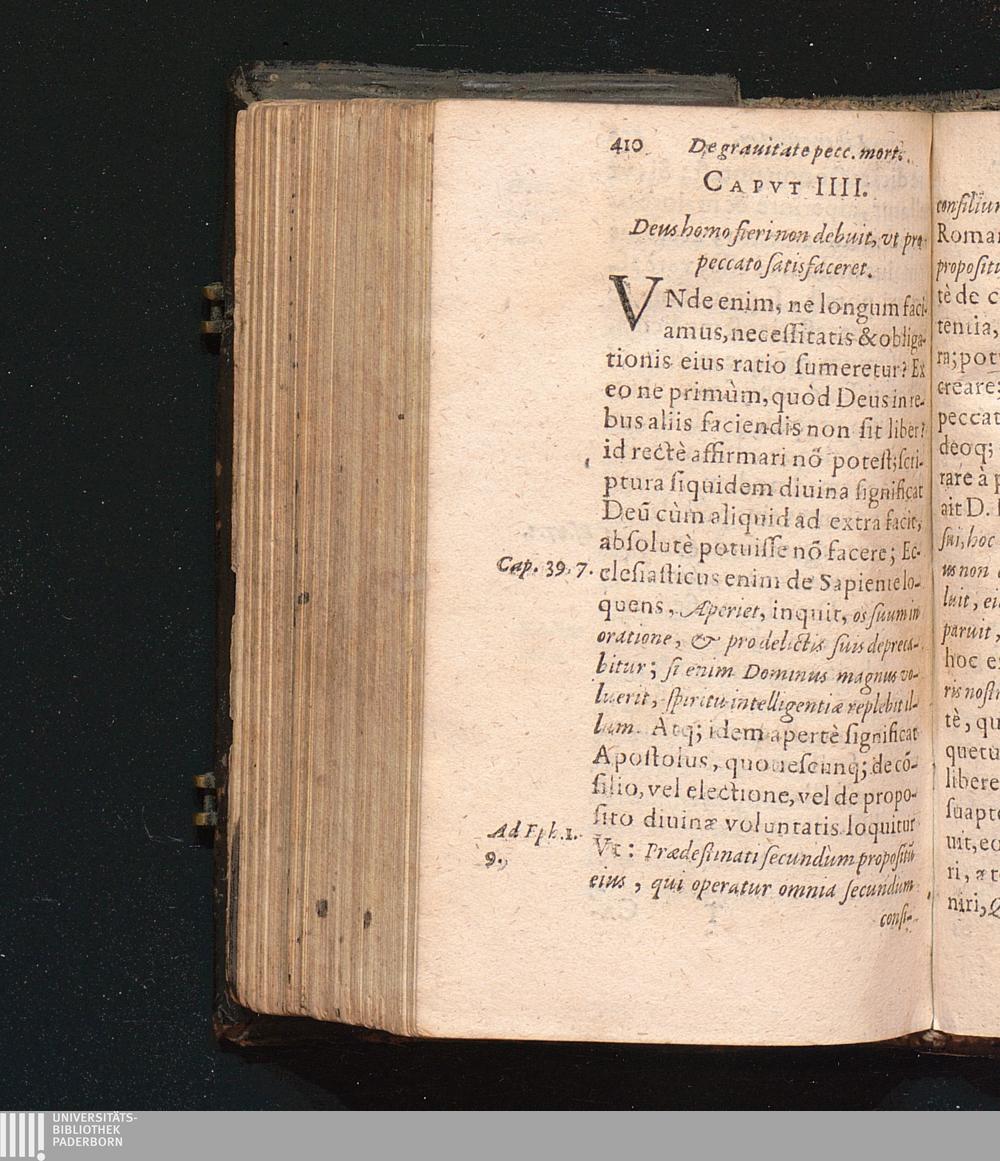 410 De grauitate pecc. mort.
CAPVT IIII.
Deus homo fieri non debuit, vt pro
peccato satisfaceret.
VNde enim, ne longum faci-
amus, necessitatis & obliga-
tionis eius ratio sumeretur? Ex
eo ne primùm, quòd Deus in re-
bus aliis faciendis non sit liber?
id rectè affirmari nõ potest; scri-
ptura siquidem diuina significat
Deũ cùm aliquid ad extra facit,
absolutè potuisse nõ facere; Ec-
Cap. 39. 7. clesiasticus enim de Sapiente lo-
quens, Aperiet, inquit, os suum in
oratione, & pro delictis suis depreca-
bitur; si enim Dominus magnus vo-
luerit, spiritu intelligentiæ replebit il-
lum. Atq; idem apertè significat
Apostolus, quotiescunq; de cõ-
silio, vel electione, vel de propo-
sito diuinæ voluntatis loquitur
Ad Eph. 1.
9.
Vt: Prædestinati secundùm propositũ
eius, qui operatur omnia secundùm
consi-
consilium
Roman
propositu
tè de c
tentia,
ra; pot
creare;
peccat
deoq;
rare à p
ait D.
sui, hoc
us non
luit, ei
paruit,
hoc e
ris nostr
tè, qu
quetu
libere
suapt
uit, eo
ri, æt
niri, Q
UNIVERSITÄTS-
BIBLIOTHEK
PADERBORN